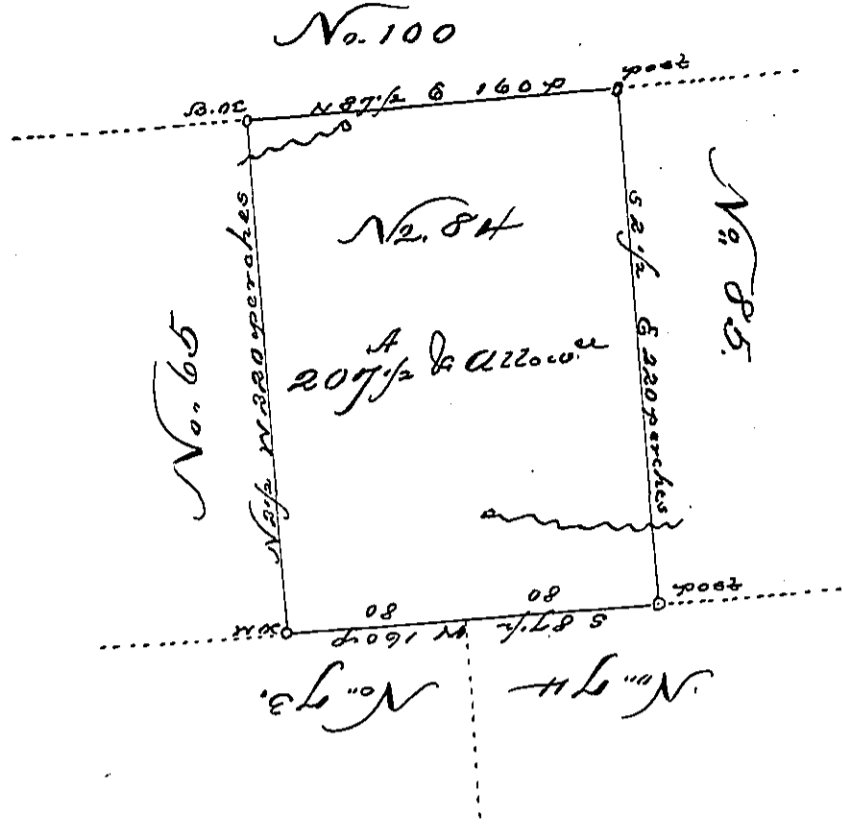 No. 100
post
N 87 1/2 E 160 P
No. 84
A
207 1/2 & allow.ce
N 2 1/2 W 220 perches
S 2 1/2 E 220 perches
No. 65
No. 85.
post
80
80
S 87 1/2 W 160 P
No. 73.
No. 74